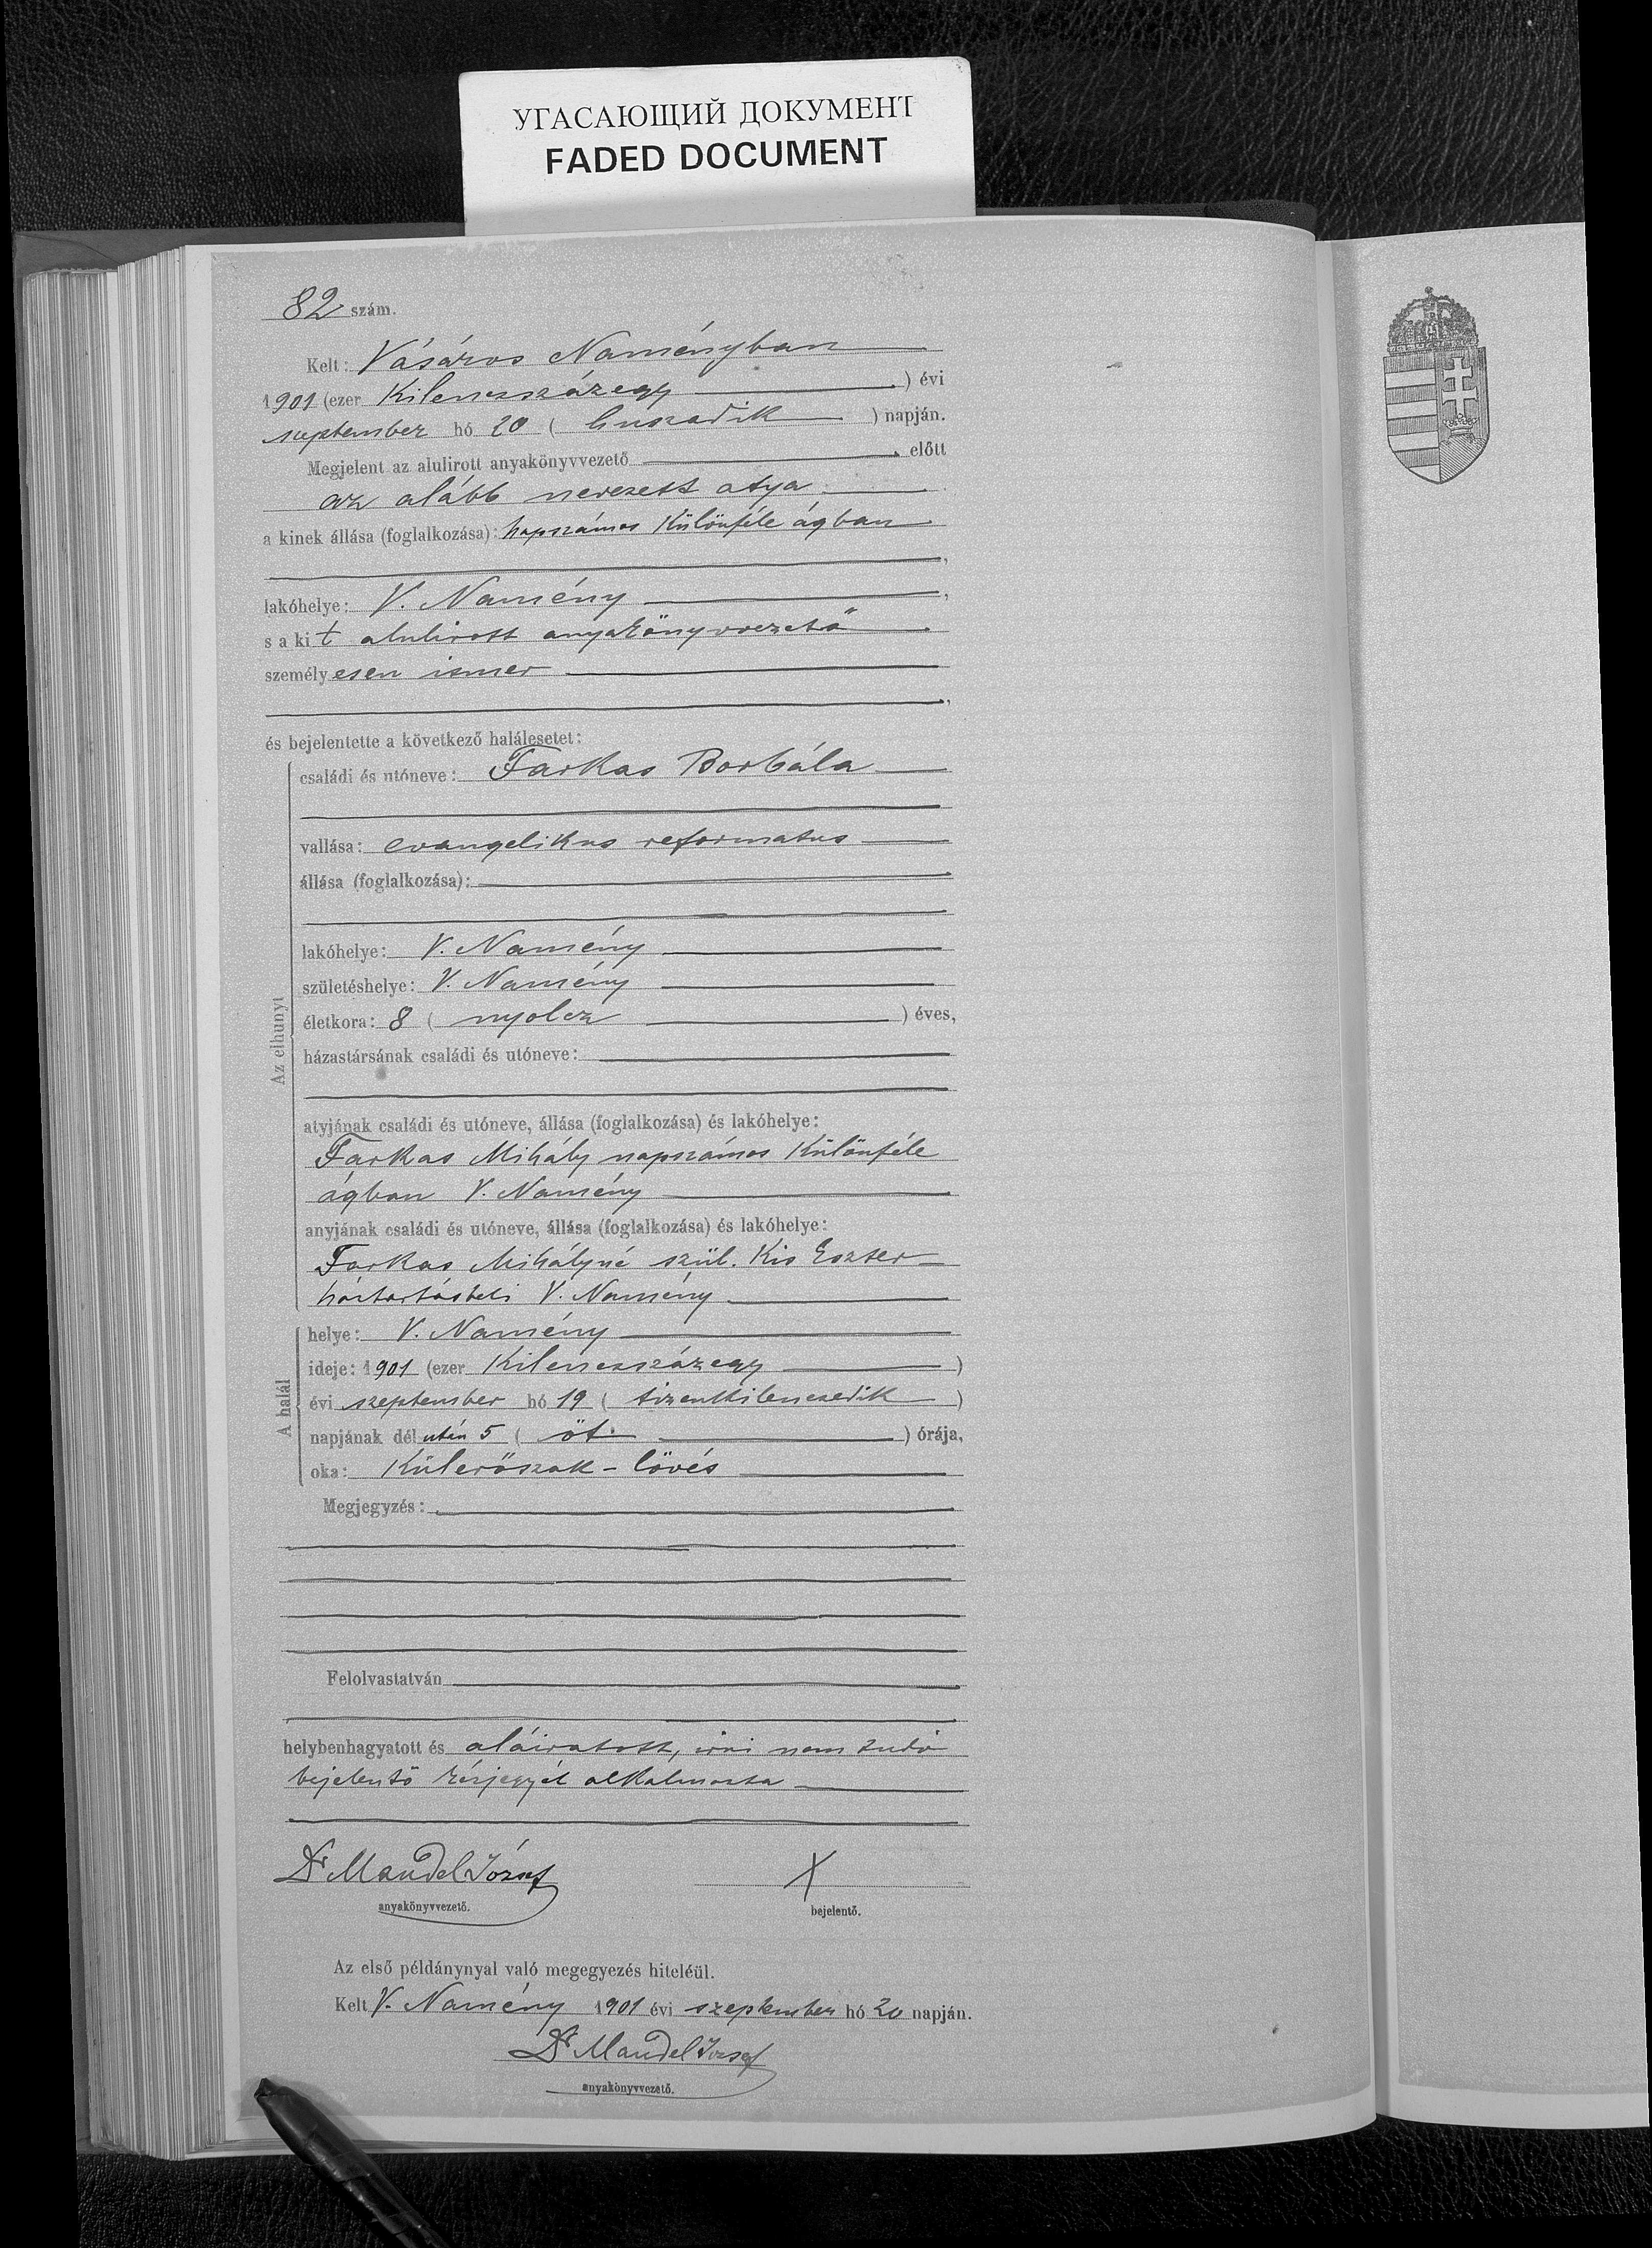 УГАСАЮЩИЙ ДОКУМЕНТ
FADED DOCUMENT
82 szám.
Kelt: Vásáros Naményban
1901 (ezer Kilenczszázegy ) évi
szeptember hó 20 ( huszadik ) napján.
Megjelent az alulirott anyakönyvvezető előtt
az alább nevezett atya
a kinek állása (foglalkozása): napszámos Különféle ágban
lakóhelye: V. Namény
s a kit alulirott anyakönyvvezető
személyesen ismer
és bejelentette a következő halálesetet:
Az elhunyt
családi és utóneve: Farkas Borbála
vallása: evangelikus reformatus
állása (foglalkozása):
lakóhelye: V. Namény
születéshelye: V. Namény
életkora: 8 ( nyolcz ) éves,
házastársának családi és utóneve:
atyjának családi és utóneve, állása (foglalkozása) és lakóhelye:
Farkas Mihály napszámos Különféle
ágban V. Namény
anyjának családi és utóneve, állása (foglalkozása) és lakóhelye:
Farkas Mihályné szül. Kis Eszter
háztartásbeli V. Namény
A halál
helye: V. Namény
ideje: 1901 (ezer Kilenczszázegy )
évi szeptember hó 19 ( tizenkilenczedik )
napjának dél után 5 ( öt ) órája,
oka: Külerőszak - lövés
Megjegyzés:
Felolvastatván
helybenhagyatott és aláiratott, irni nem tudó
bejelentő kézjegyét alkalmazta
Dr Mandel József X
anyakönyvvezető. bejelentő.
Az első példánynyal való megegyezés hiteléül.
Kelt V. Namény 1901 évi szeptember hó 20 napján.
Dr Mandel József
anyakönyvvezető.